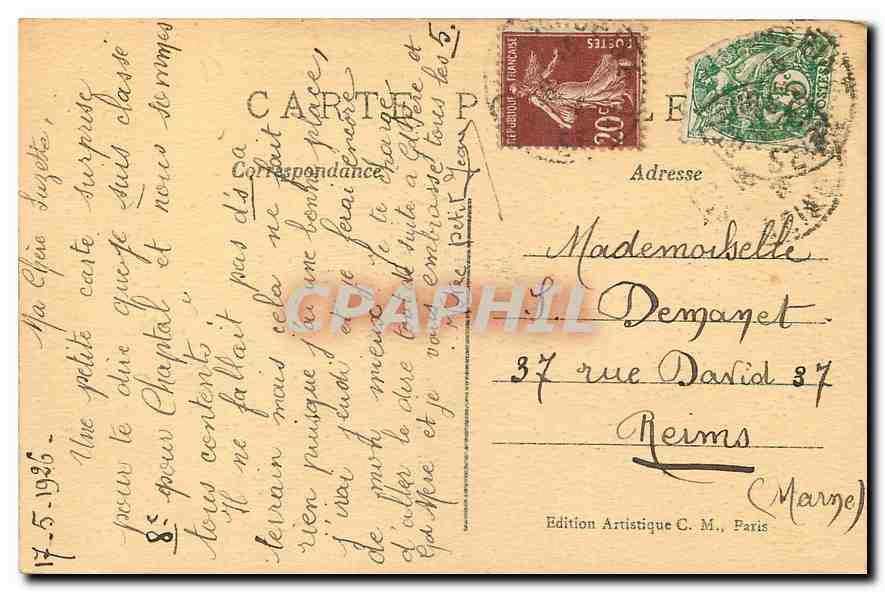 CARTE POSTALE
Correspondance
Adresse
17-5-1926-
Ma Chère Suzette,
Une petite carte surprise
pour te dire que je suis classé
8e pour Chaptal et nous sommes
tous contents.
Il ne fallait pas de
terrain mais cela ne fait
rien puisque j'ai une bonne place,
J'irai jeudi et je ferai encore
de mon mieux. Je te charge
d'aller le dire tout de suite à Gd Père et
Gd Mère et je vous embrasse tous les 5.
petit Jean
Mademoiselle
S. Demanet
37 rue David 37
Reims
(Marne)
Edition Artistique C. M., Paris
REPUBLIQUE FRANÇAISE
POSTES
20c
5c
CPAPHIL